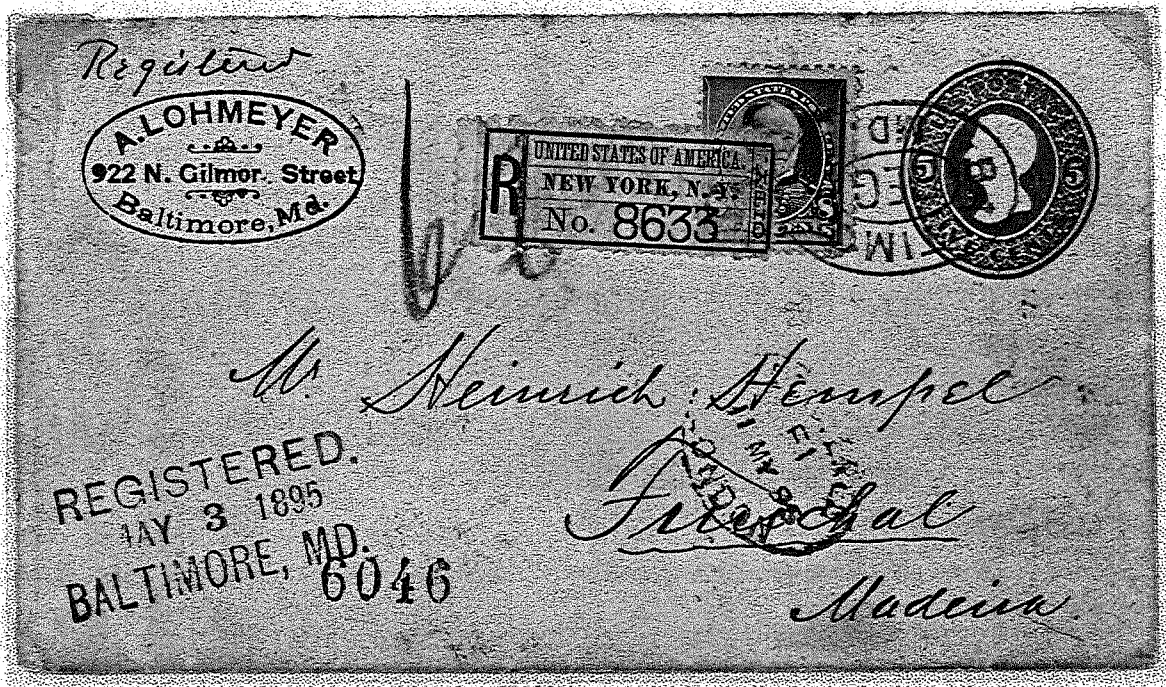 Registered
A. LOHMEYER
922 N. Gilmor Street
Baltimore, Md.
R
UNITED STATES OF AMERICA.
NEW YORK, N.Y.
No. 8633
U.S. POSTAGE
FIVE CENTS
5 5
Mr. Heinrich Hempel
Funchal
Madeira.
REGISTERED.
MAY 3 1895
BALTIMORE, MD.
6046